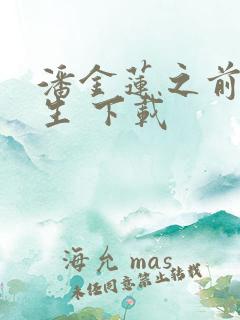 潘金莲之前
生 下载
海允 mas
未任同意禁止转载